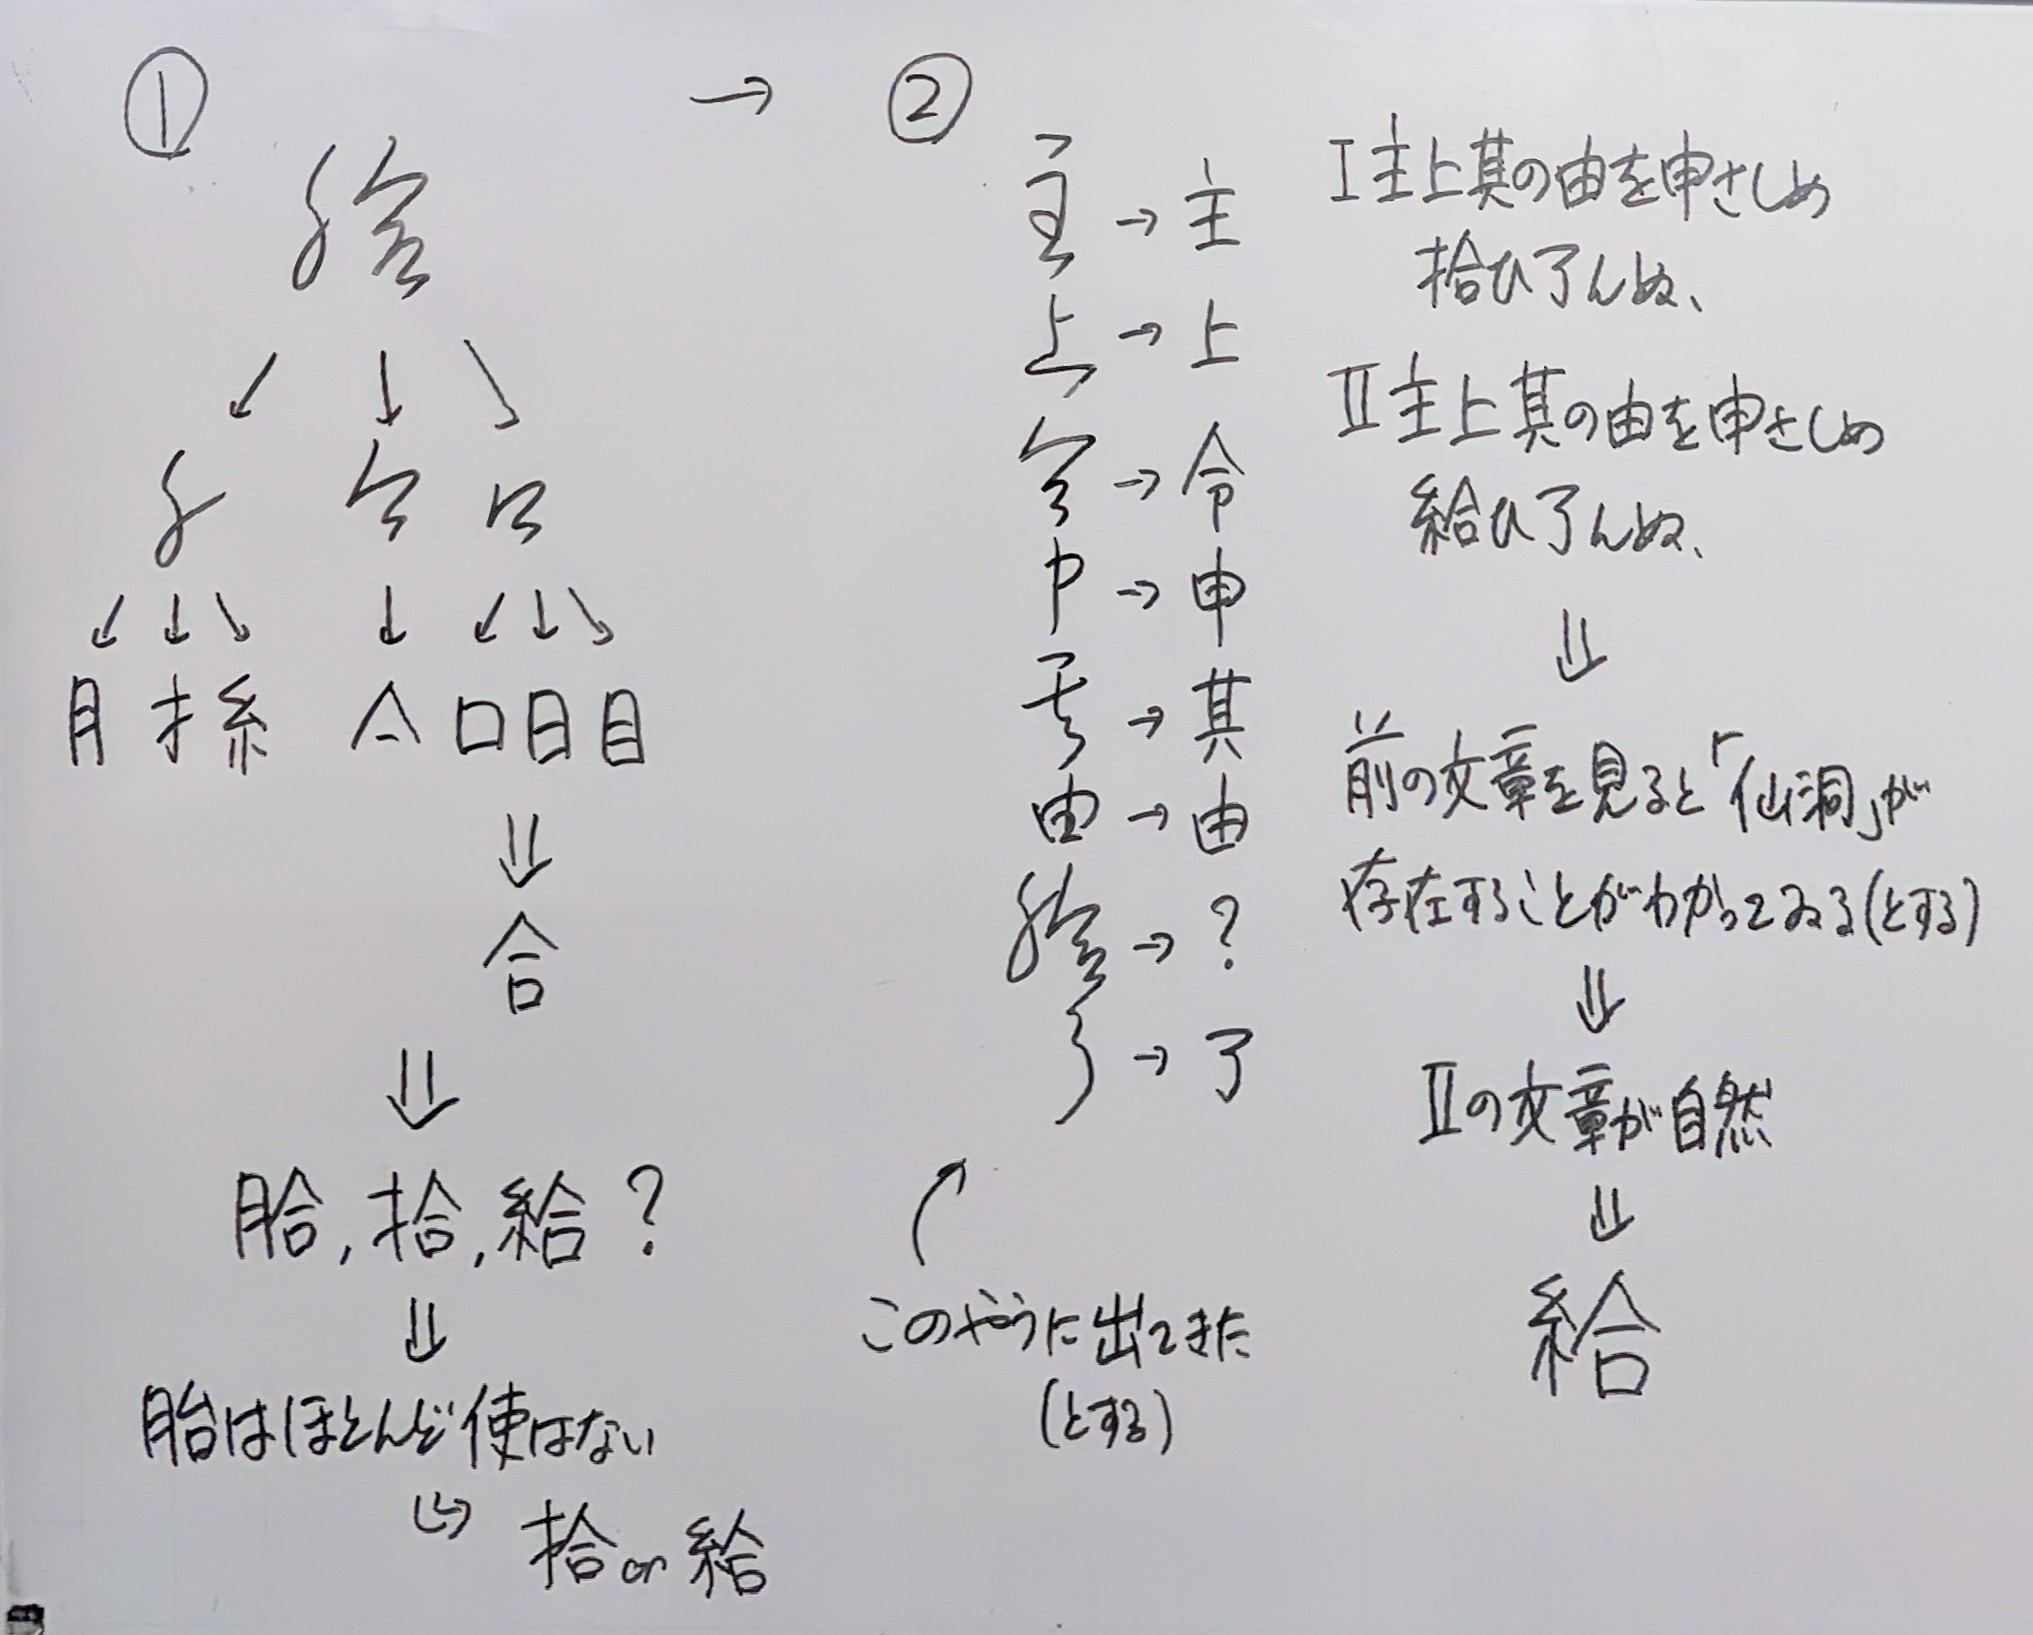 ① →
月 扌 糸 亼 口 日 目
合
胎, 拾, 給 ?
胎はほとんど使はない
↳ 拾 or 給
②
→ 主
上 → 上
→ 令
→ 申
→ 其
由 → 由
→ ?
→ 了
このやうに出てきた
(とする)
Ⅰ主上其の由を申さしめ
拾ひ了んぬ、
Ⅱ主上其の由を申さしめ
給ひ了んぬ、
前の文章を見ると「仙洞」が
存在することがわかってゐる(とする)
Ⅱの文章が自然
給